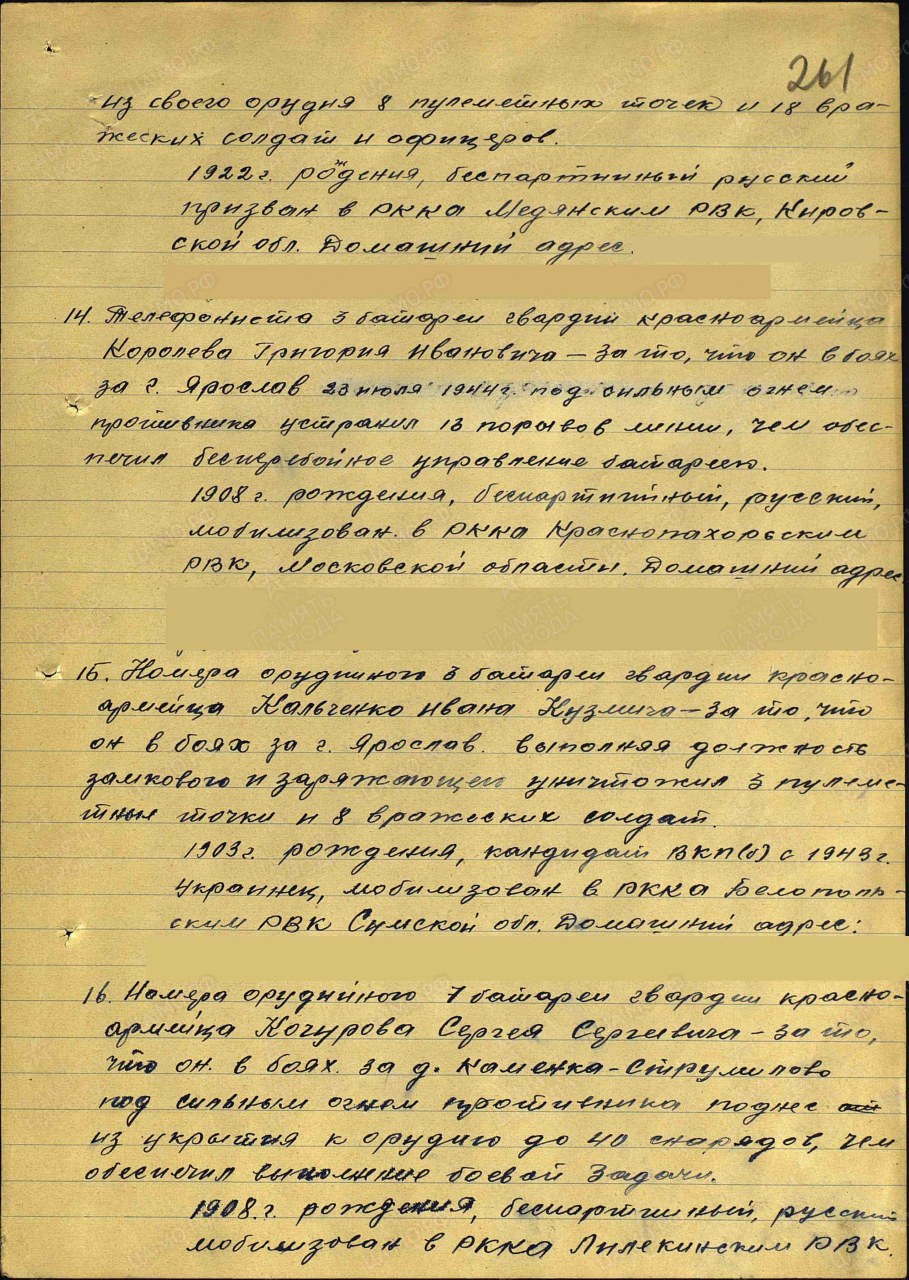 261
из своего орудия 8 пулеметных точек и 18 вра-
жеских солдат и офицеров.
1922 г. рождения, беспартийный русский
призван в РККА Медянским РВК, Киров-
ской обл. Домашний адрес.
14. Телефониста 3 батареи гвардии красноармейца
Королева Григория Ивановича – за то, что он в боях
за г. Ярослав 23 июля 1944 г. под сильным огнем
противника устранил 13 порывов линии, чем обес-
печил бесперебойное управление батареею.
1908 г. рождения, беспартийный, русский,
мобилизован в РККА Краснопахорьским
РВК, Московской области. Домашний адрес
15. Номера орудийного 3 батареи гвардии красно-
армейца Кальченко Ивана Кузмича – за то, что
он в боях за г. Ярослав. выполняя должность
замкового и заряжающего уничтожил 3 пулеме-
тные точки и 8 вражеских солдат.
1903 г. рождения, кандидат ВКП(б) с 1943 г.
Украинец, мобилизован в РККА Белополь-
ским РВК Сумской обл. Домашний адрес:
16. Номера орудийного 7 батареи гвардии красно-
армейца Кочурова Сергея Сергеевича – за то,
что он. в боях. за д. Каменка-Струмилово
под сильным огнем противника поднес
из укрытия к орудию до 40 снарядов, чем
обеспечил выполнение боевой задачи.
1908. г. рождения, беспартийный, русский
мобилизован в РККА РВК.
ПАМЯТЬ
НАРОДА